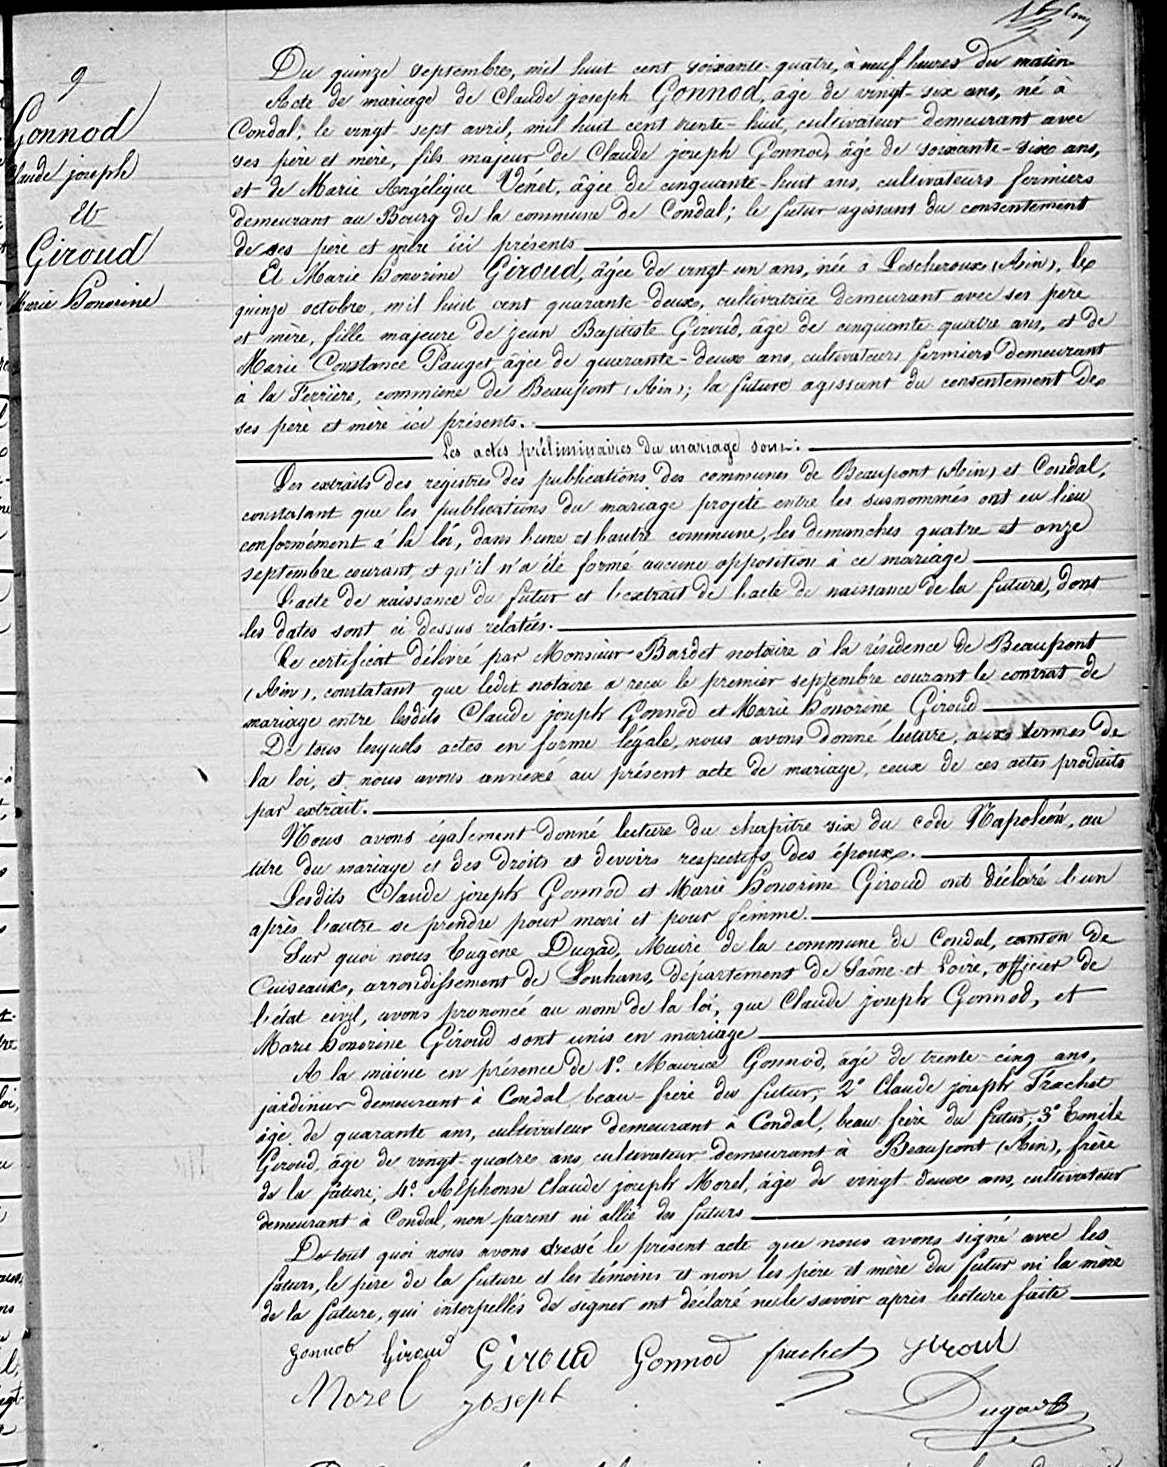 9
Gonnod
Claude joseph
Et
Giroud
Marie honorine
Du quinze septembre, mil huit cent soixante-quatre, à neuf heures du matin
Acte de mariage de Claude joseph Gonnod, âgé de vingt-six ans, né à
Condal, le vingt-sept avril, mil huit cent trente-huit, cultivateur demeurant avec
ses père et mère, fils majeur de Claude joseph Gonnod, âgé de soixante-six ans,
et de Marie Angélique Vénet, âgée de cinquante-huit ans, cultivateurs fermiers
demeurant au Bourg de la commune de Condal; le futur agissant du consentement
de ses père et mère ici présents
Et Marie honorine Giroud, âgée de vingt-un ans, née à Lescheroux (Ain), le
quinze octobre, mil huit cent quarante-deux, cultivatrice demeurant avec ses père
et mère, fille majeure de jean Baptiste Giroud, âgé de cinquante-quatre ans, et de
Marie Constance Pauget âgée de quarante-deux ans, cultivateurs fermiers demeurant
à la Ferrière, commune de Beaupont (Ain); la future agissant du consentement de
ses père et mère ici présents.
Les actes préliminaires du mariage sont:
Les extraits des registres des publications des communes de Beaupont (Ain) et Condal,
constatant que les publications du mariage projeté entre les susnommés ont eu lieu
conformément à la loi, dans l'une et l'autre commune, les dimanches quatre et onze
septembre courant, et qu'il n'a été formé aucune opposition à ce mariage
L'acte de naissance du futur et l'extrait de l'acte de naissance de la future, dont
les dates sont ci-dessus relatées.
Le certificat délivré par Monsieur Bardet notaire à la résidence de Beaupont
(Ain), constatant que ledit notaire a reçu le premier septembre courant le contrat de
mariage entre lesdits Claude joseph Gonnod et Marie honorine Giroud
De tous lesquels actes en forme légale, nous avons donné lecture, aux termes de
la loi, et nous avons annexé au présent acte de mariage, ceux de ces actes produits
par extrait.
Nous avons également donné lecture du chapitre six du code Napoléon, au
titre du mariage et des droits et devoirs respectifs des époux.
Lesdits Claude joseph Gonnod et Marie honorine Giroud ont déclaré l'un
après l'autre se prendre pour mari et pour femme.
Sur quoi nous Eugène Dugad, Maire de la commune de Condal, canton de
Cuiseaux, arrondissement de Louhans, département de Saône-et-Loire, officier de
l'état civil, avons prononcé au nom de la loi, que Claude joseph Gonnod, et
Marie honorine Giroud sont unis en mariage
A la mairie en présence de 1º. Maurice Gonnod, âgé de trente-cinq ans,
jardinier demeurant à Condal beau-frère du futur, 2º Claude joseph Frachet
âgé de quarante ans, cultivateur demeurant à Condal, beau frère du futur, 3º Emile
Giroud, âgé de vingt-quatre ans cultivateur demeurant à Beaupont (Ain), frère
de la future; 4º. Alphonse Claude joseph Morel, âgé de vingt-deux ans, cultivateur
demeurant à Condal, non parent ni allié des futurs
De tout quoi nous avons dressé le présent acte que nous avons signé avec les
futurs, le père de la future et les témoins et non les père et mère du futur ni la mère
de la future, qui interpellés de signer ont déclaré ne le savoir après lecture faite
Gonnod Giroud Giroud Gonnod frachet giroud
Morel joseph Dugad